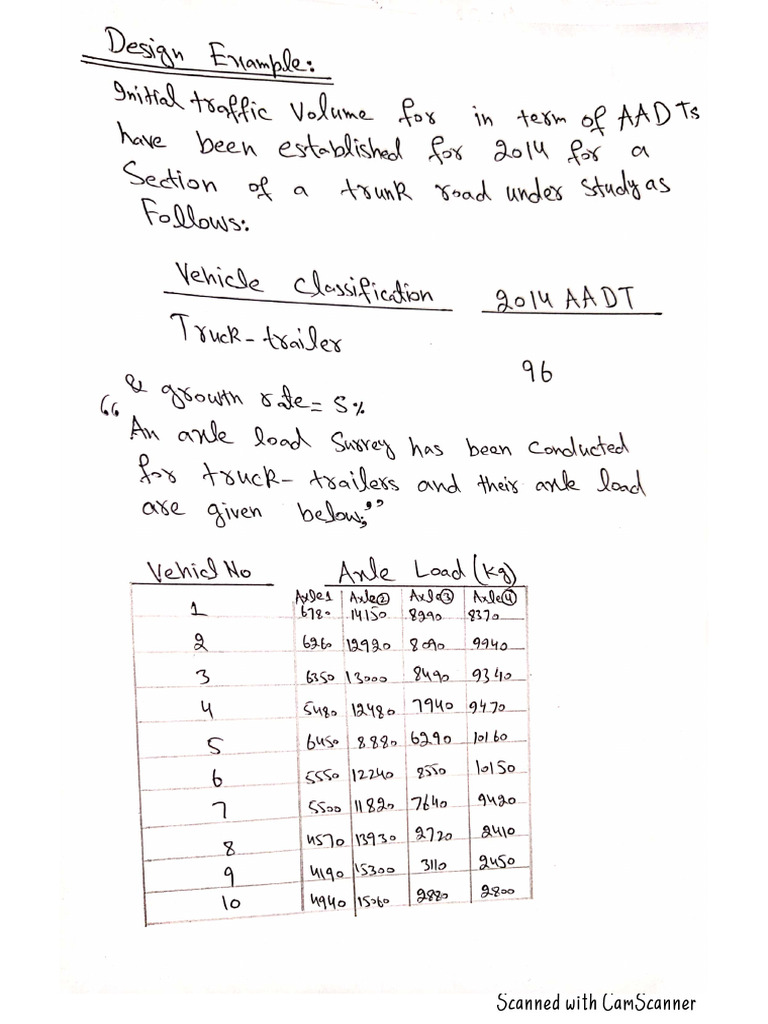 Design Example:
Initial traffic Volume for in term of AADTs
have been established for 2014 for a
Section of a trunk road under study as
Follows:
Vehicle Classification 2014 AADT
Truck-trailer
96
& growth rate = 5%
“An axle load Survey has been Conducted
for truck-trailers and their axle load
are given below;”
Vehicl No Axle Load (kg)
Axle1 Axle② Axle③ Axle④
1 6780 14150 8290 8370
2 6260 12920 8090 9940
3 6350 13000 8490 9340
4 5480 12480 7940 9470
5 6450 8880 6290 10160
6 5550 12240 8550 10150
7 5500 11820 7640 9420
8 4570 13930 2720 2410
9 4190 15300 3110 2450
10 4940 15060 2880 2800
Scanned with CamScanner